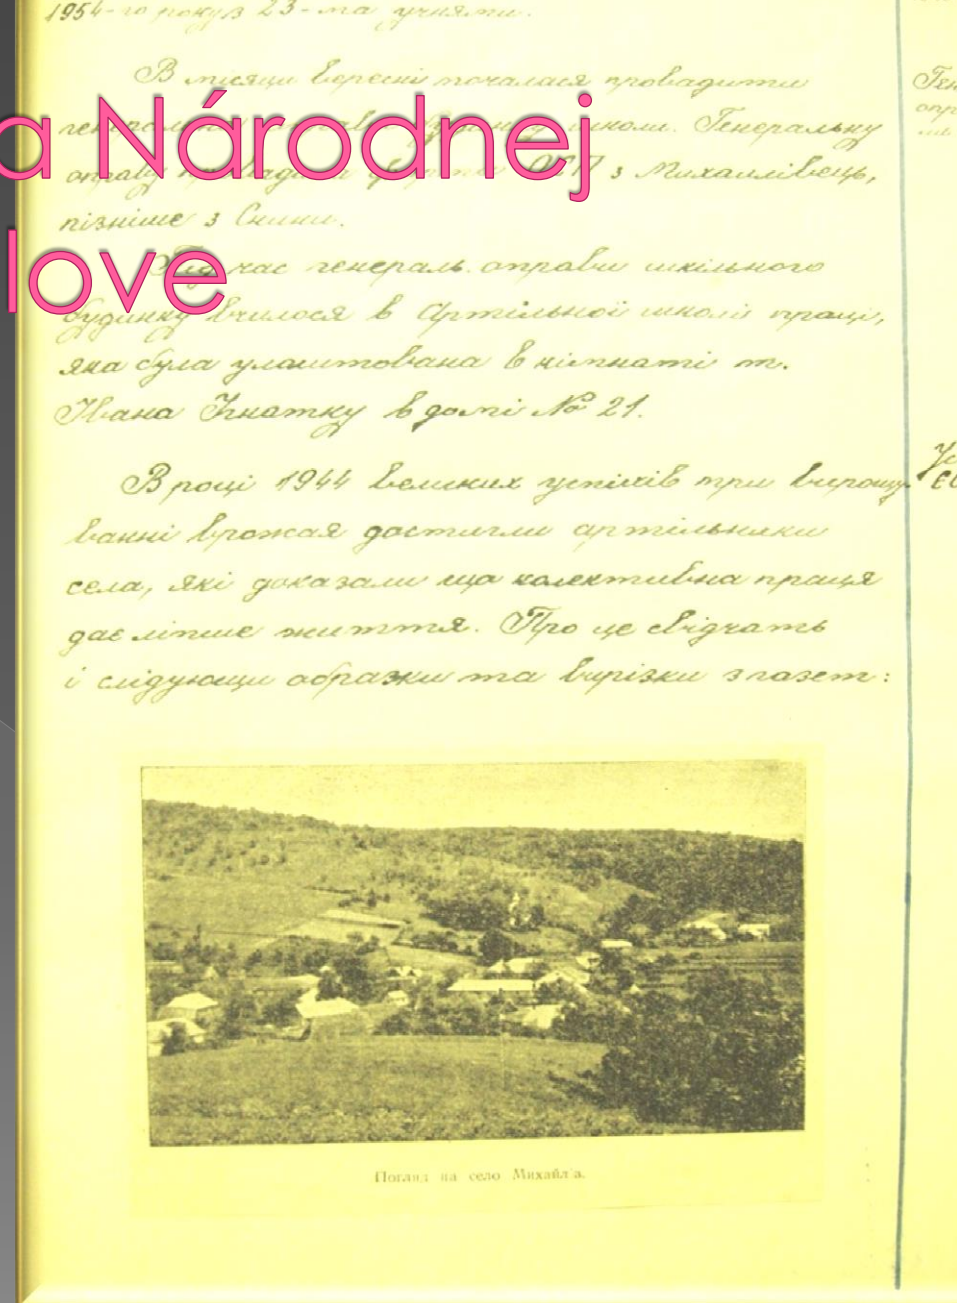 1954-го року з 23-ма учнями.
В місяци вересні почалася провадити
а Národnej
школи. Генеральну
оправу з Михайлівець,
пізніше з Снини.
love
Під час генераль. оправи шкільного
будинку вчилося в Артільної школи праці,
яка була улаштована в кімнаті т.
Івана Ігнатку в домі № 21.
В році 1944 великих успіхів при вирощу-
ванні врожая достигли артільники
села, які доказали що колективна праця
дає ліпше життя. Про це свідчать
і слідующи образки та вирізки з газет:
Погляд на село Михайл'а.